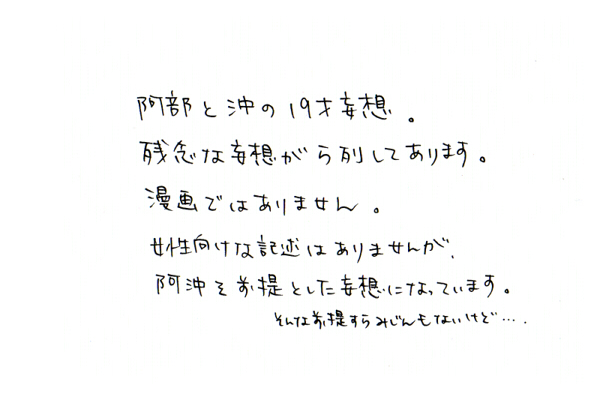 阿部と沖の19才妄想。
残念な妄想がら列してあります。
漫画ではありません。
女性向けな記述はありませんが、
阿沖を前提とした妄想になっています。
そんな前提すらみじんもないけど…．